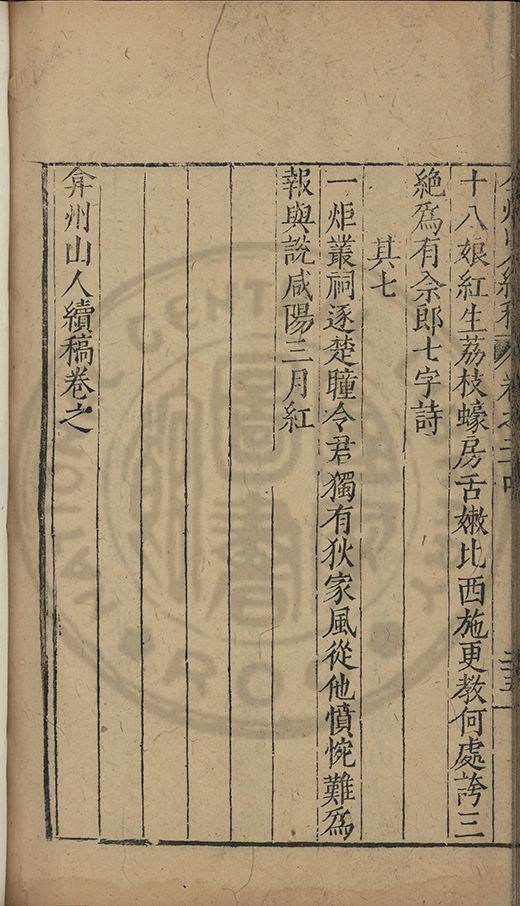 十八娘紅生荔枝蠔房舌嫩比西施更教何處誇三
絶爲有佘郎七字詩
其七
一炬叢祠逐楚瞳令君獨有狄家風從他憤惋難爲
報與說咸陽三月紅
弇州山人續稿卷之